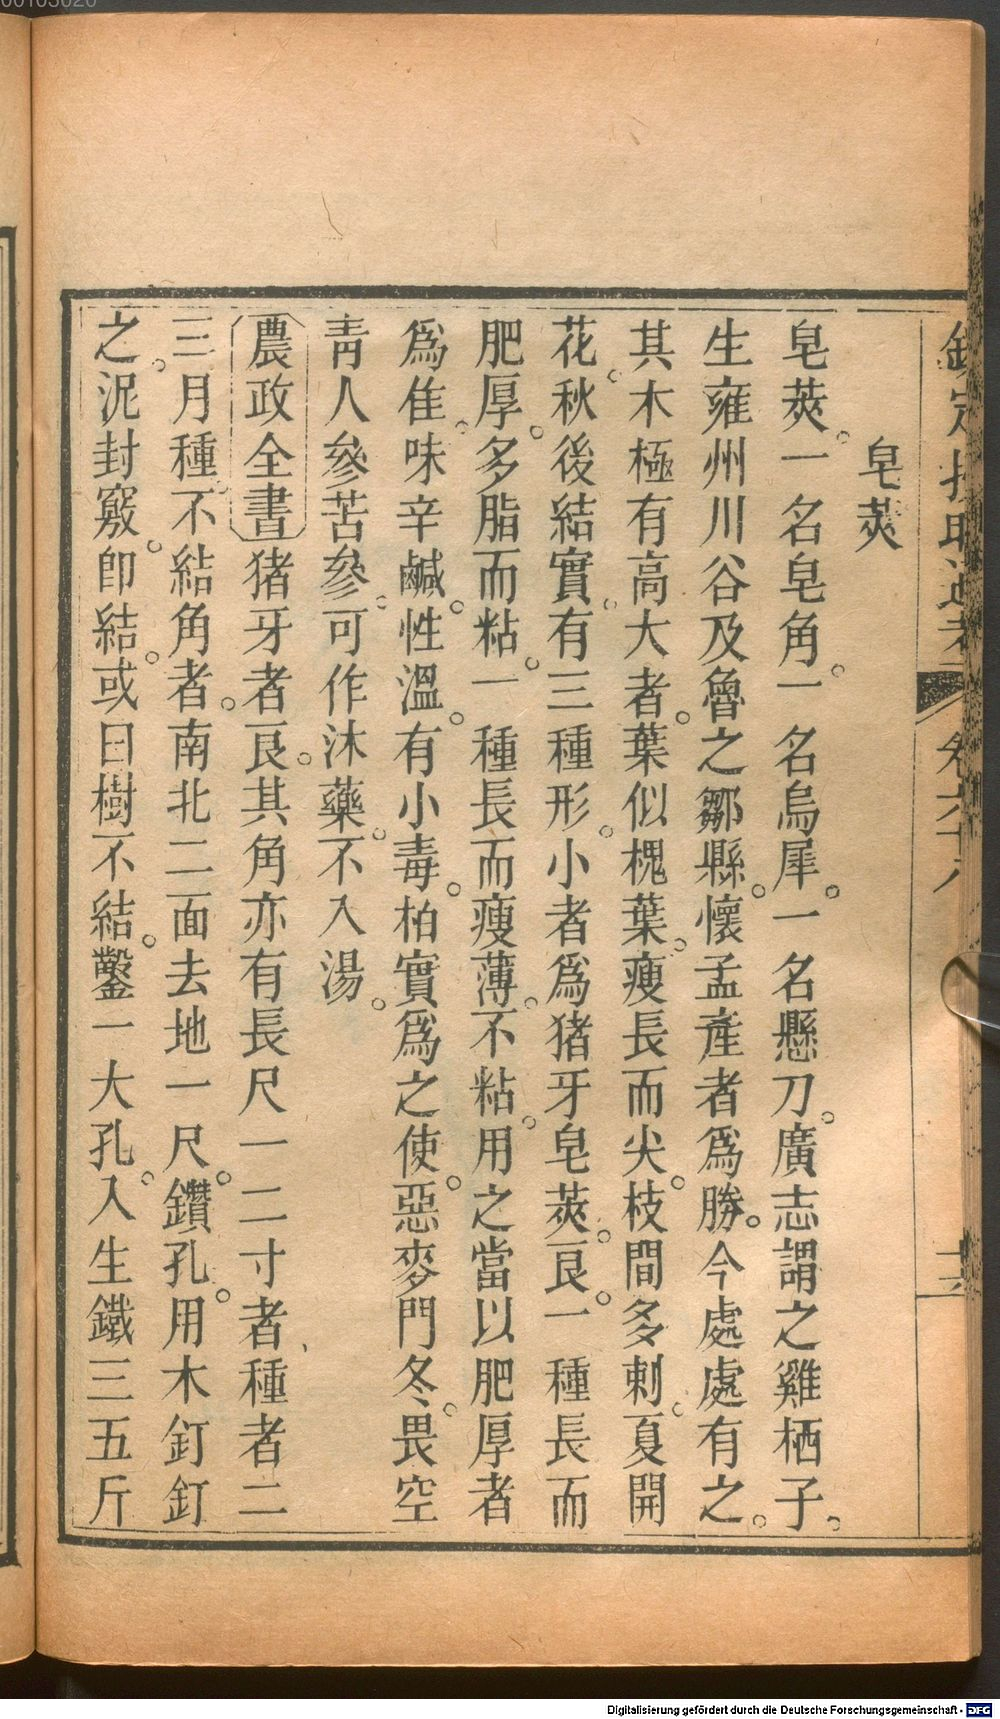 00103020
欽定授時通考
卷六十八
皂莢
皂莢。一名皂角。一名烏犀。一名懸刀。廣志謂之雞栖子。
生雍州川谷及魯之鄒縣。懷孟產者爲勝。今處處有之。
其木極有高大者。葉似槐葉。瘦長而尖。枝間多刺。夏開
花。秋後結實。有三種形。小者爲猪牙皂莢。良。一種長而
肥厚。多脂而粘。一種長而瘦薄。不粘。用之當以肥厚者
爲佳。味辛鹹。性溫。有小毒。柏實爲之使。惡麥門冬。畏空
靑人參苦參。可作沐藥。不入湯。
農政全書猪牙者良。其角亦有長尺一二寸者、種者二
三月種。不結角者。南北二面去地一尺。鑽孔。用木釘釘
之。泥封竅。卽結。或曰樹不結。鑿一大孔。入生鐵三五斤
Digitalisierung gefördert durch die Deutsche Forschungsgemeinschaft - DFG